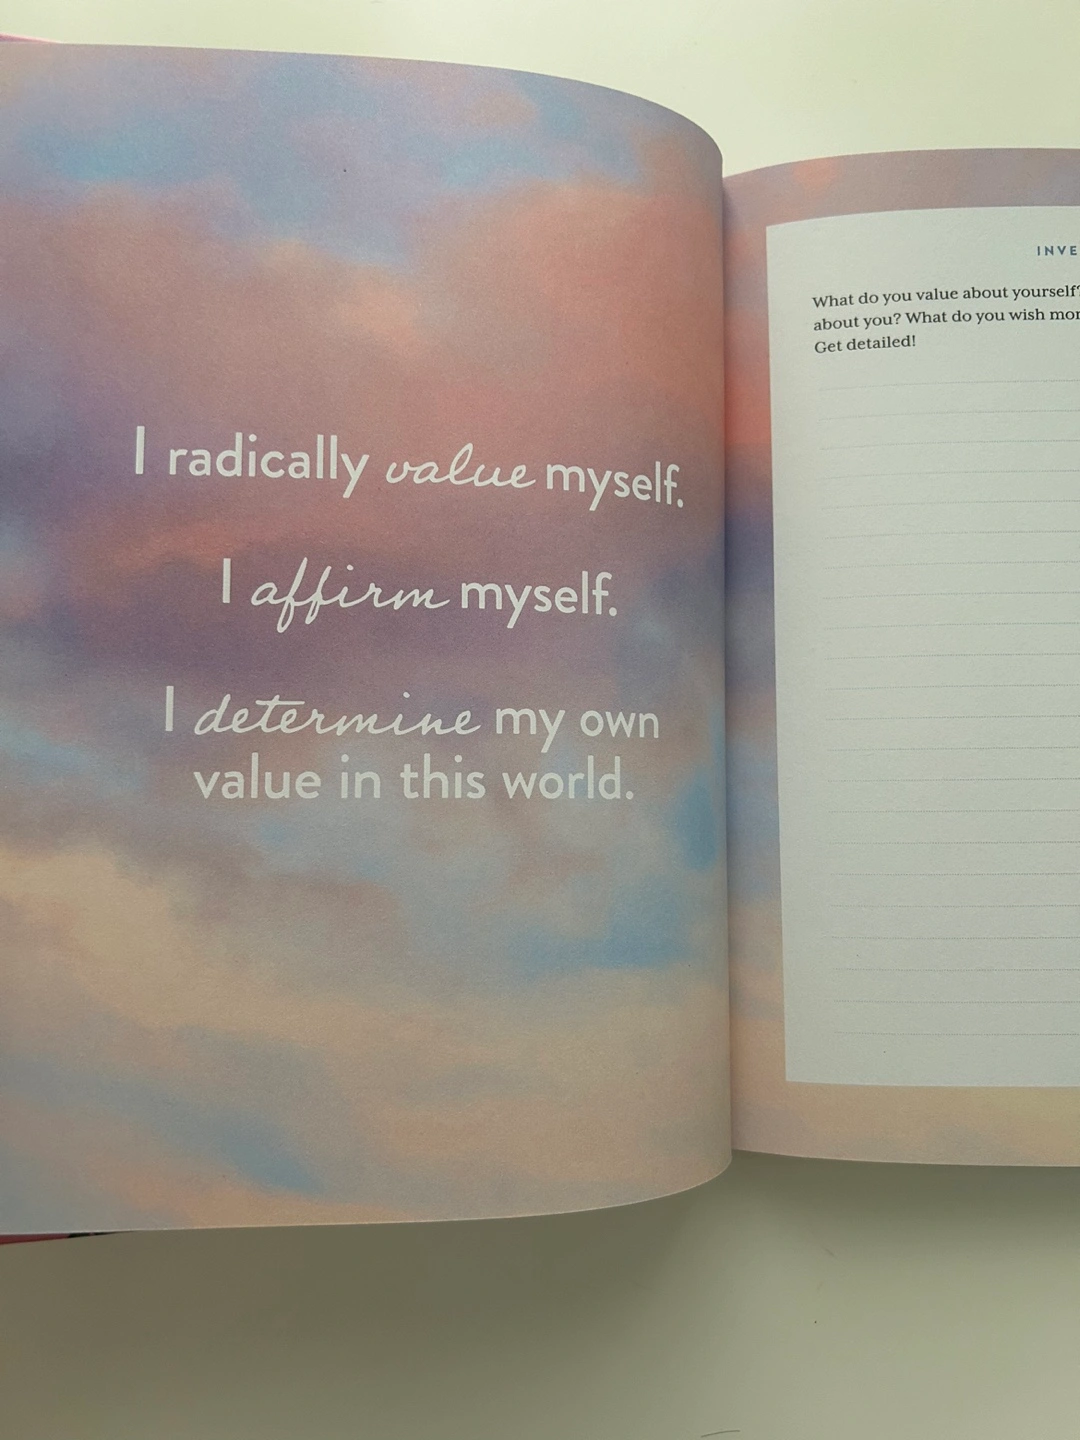 I radically value myself.
I affirm myself.
I determine my own
value in this world.
What do you value about yourself?
about you? What do you wish
Get detailed!